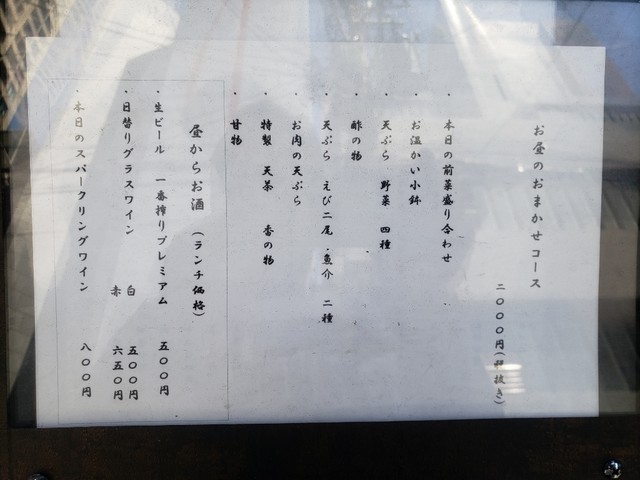 お昼のおまかせコース
二〇〇〇円(税抜き)
・本日の前菜盛り合わせ
・お温かい小鉢
・天ぷら 野菜 四種
・酢の物
・天ぷら えび二尾・魚介 二種
・お肉の天ぷら
・特製 天茶 香の物
・甘物
昼からお酒 (ランチ価格)
・生ビール 一番搾りプレミアム 五〇〇円
・日替りグラスワイン 白 五〇〇円
赤 六五〇円
・本日のスパークリングワイン 八〇〇円